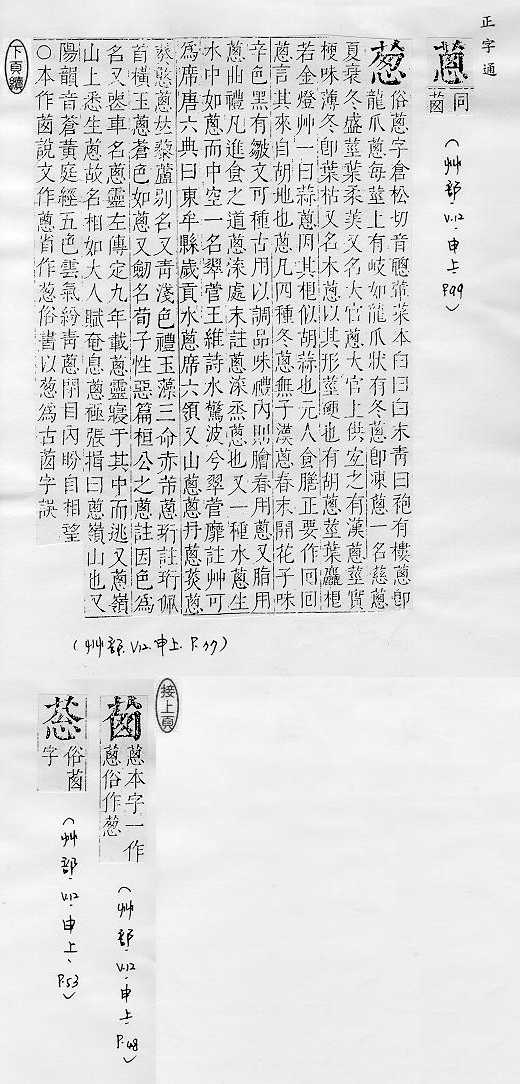 正字通
蔥 同
𦶇
(艸部.V.12.申上.P.99)
葱
俗蔥字倉松切音聰葷菜本白曰白末靑曰葱有樓蔥卽
龍爪蔥每莖上有岐如龍爪狀有冬蔥卽凍蔥一名慈蔥
夏衰冬盛莖葉柔美又名大官蔥大官上供宜之有漢蔥莖實
梗味薄冬卽葉枯又名木蔥以其形莖硬也有胡蔥莖葉麤梗
若金燈艸一曰蒜蔥因其根似胡蒜也元人食膳正要作回回
蔥言其來自胡地也蔥凡四種冬蔥無子漢蔥春末開花子味
辛色黑有皺文可種古用以調品味禮內則膾春用蔥又脂用
蔥曲禮凡進食之道蔥渫處末註蔥渫烝蔥也又一種水蔥生
水中如蔥而中空一名翠菅王維詩水驚波兮翠菅靡註艸可
爲席唐六典曰東牟縣歲貢水蔥席六領又山蔥蔥丹蔥蔥
葵憨蔥𠀤藜蘆别名又青淺色禮玉藻三命赤芾蔥珩註珩佩
首橫玉蔥蒼色如蔥又劒名荀子性惡篇桓公之蔥註因色爲
名又車名蔥靈左傳定九年載蔥靈寢于其中而逃又蔥嶺
山上悉生蔥故名相如大人賦奄息蔥極張揖曰蔥嶺山也又
陽韻音蒼黃庭經五色雲氣紛靑蔥閉目內眄自相望
○本作𦶇說文作蔥省作葱俗書以葱爲古𦶇字誤
下頁續
(艸部.V.12.申上.P.37)
接上頁
蔥本字一作
蔥俗作葱
(艸部.V.12.申上.P.48)
俗𦶇
字
(艸部.V.12.申上.P.53)